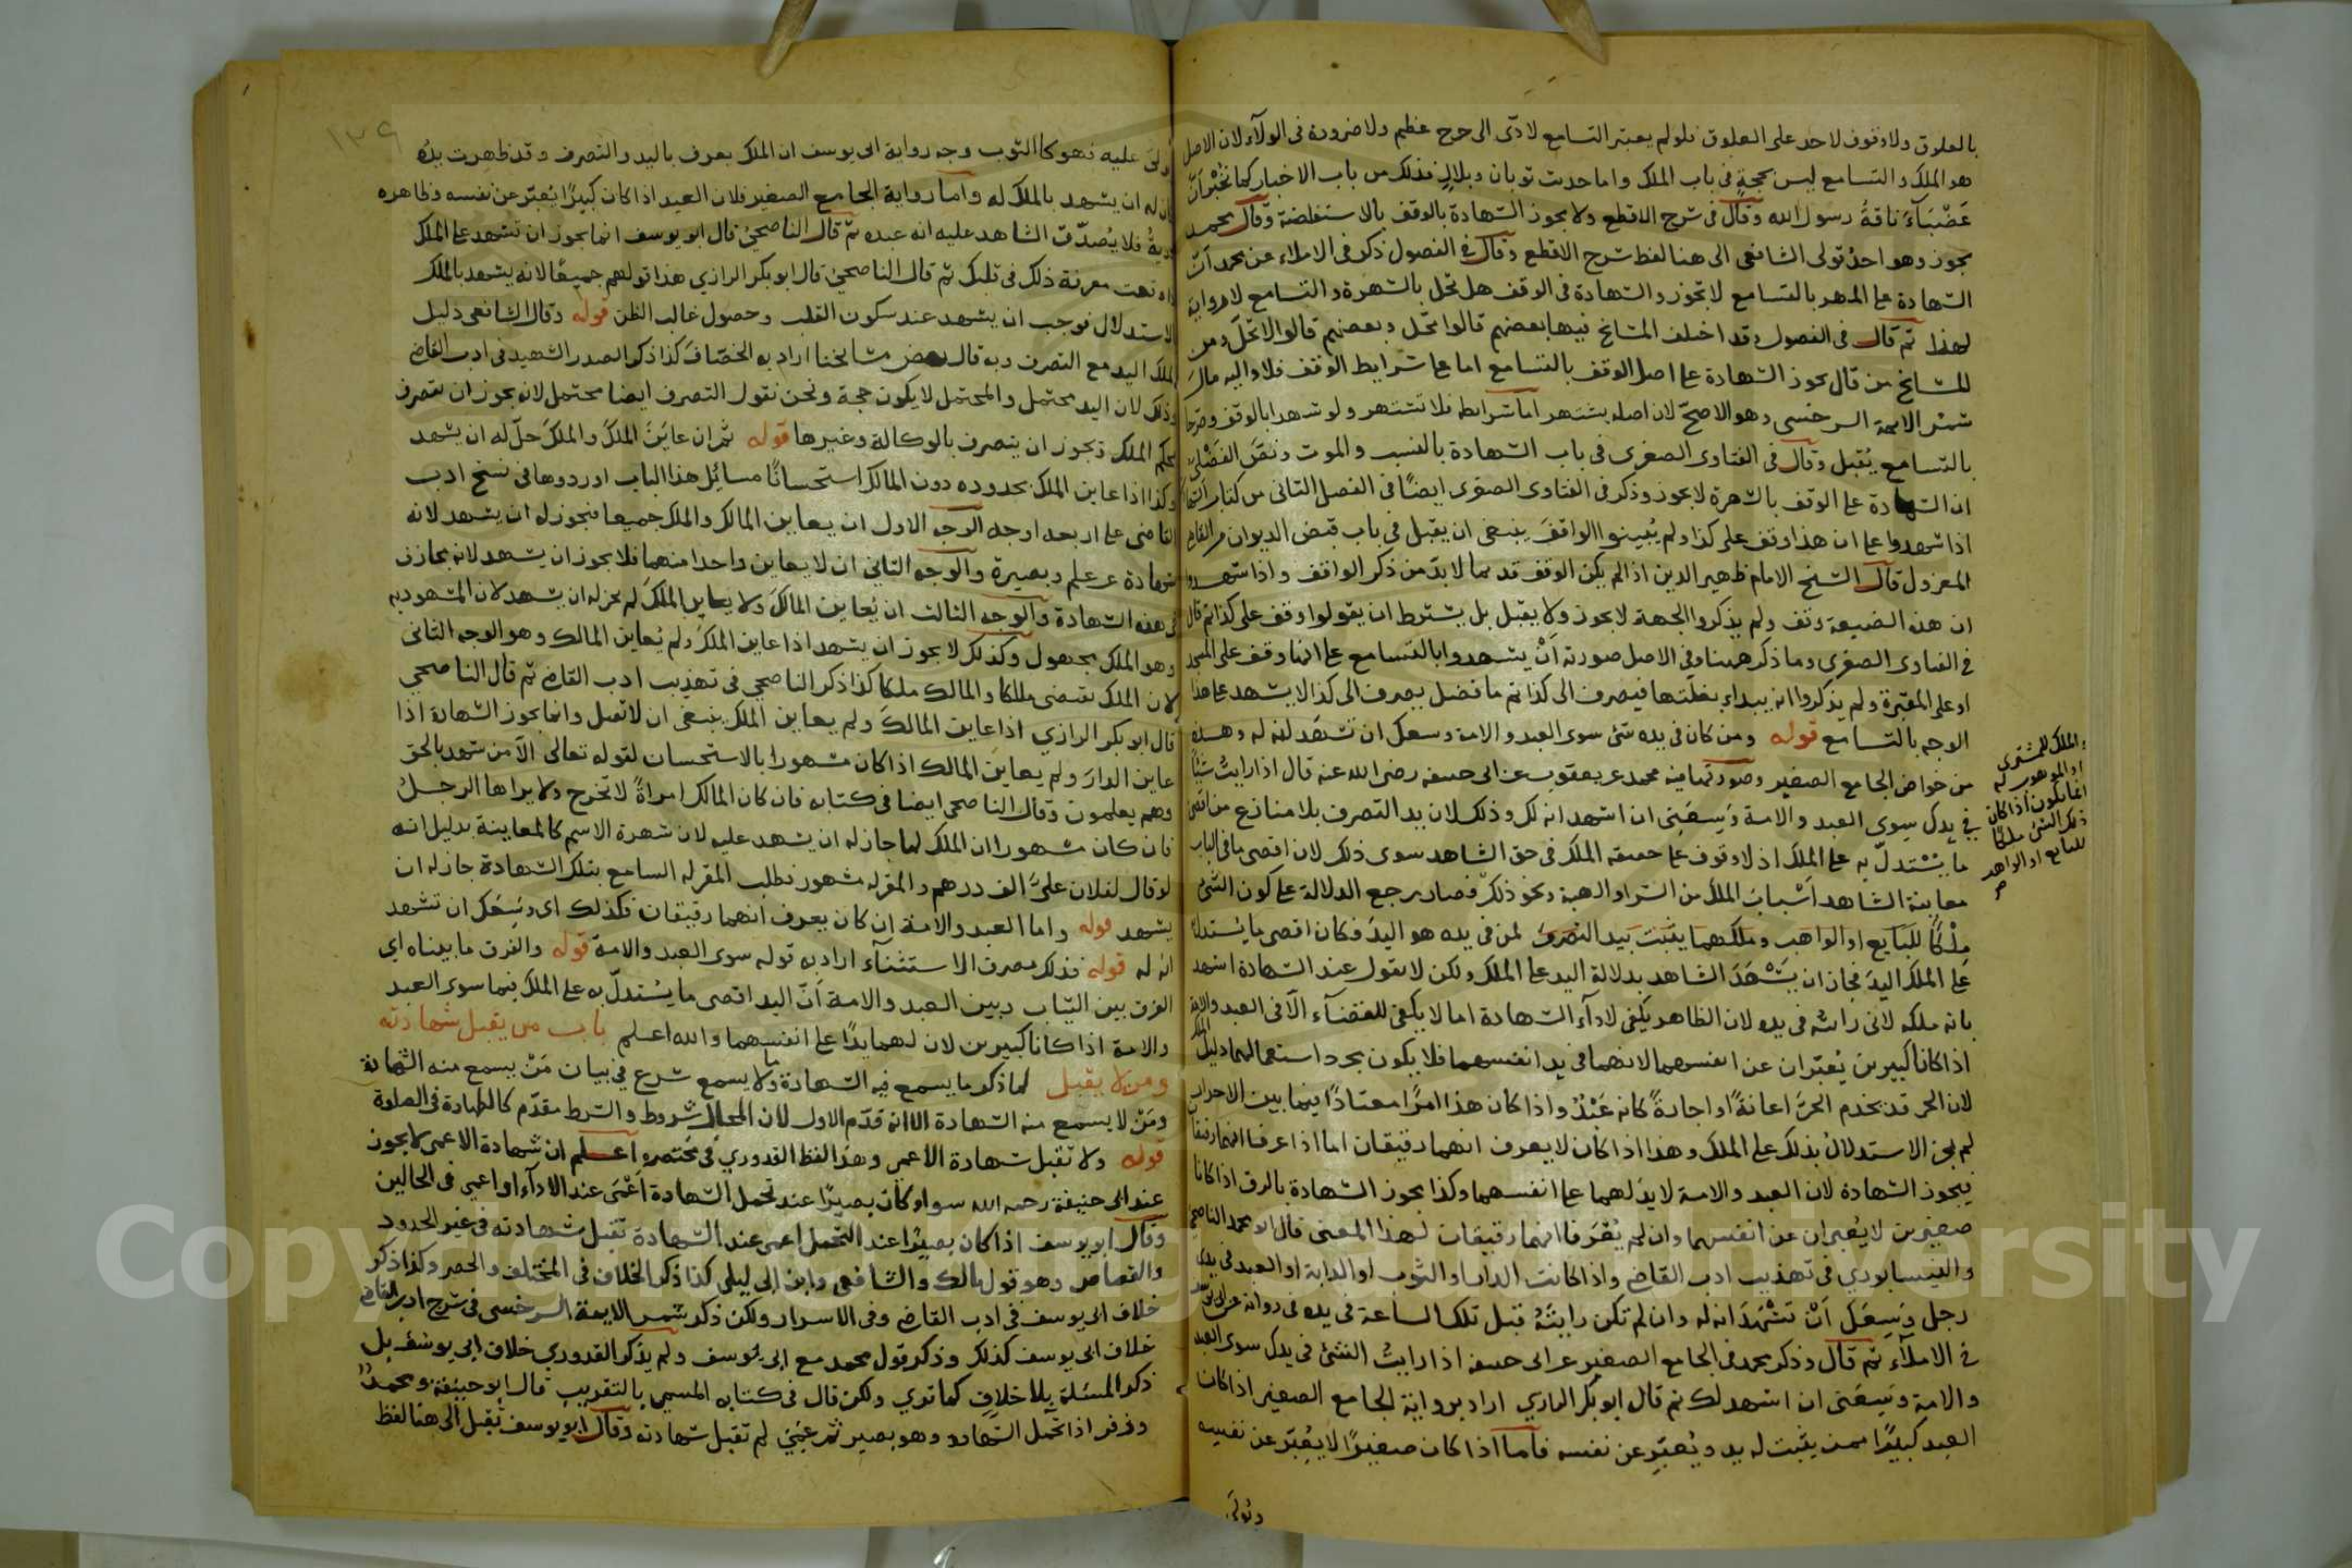 بالعلوق ولا وقوف لاحد على العلوق فلو لم يعتبر التسامع لادّى الى حرج عظيم ولا ضرورة فى الولآء لان الاصل
هو الملك والتسامع ليس بحجةٍ فى باب الملك واما حديث ثوبان وبلال فذلك من باب الاخبار كما نُخْبر انّ
عَضْبَآءَ ناقةُ رسول الله وقال فى شرح الاقطع ولا يجوز الشهادة بالوقف بالاستفاضة وقال محمد
يجوز وهو احد قولى الشافعى الى هنا لفظ شرح الاقطع وقال فى الفصول ذكر فى الاملاء عن محمد انّ
الشهادة على المهر بالتسامع لا تجوز والشهادة فى الوقف هل تحل بالشهرة والتسامع لا رواية
لهذا ثم قال فى الفصول وقد اختلف المشايخ فيها بعضهم قالوا تحل وبعضهم قالوا لا تحل ومن
المشايخ من قال يجوز الشهادة على اصل الوقف بالتسامع اما على شرايط الوقف فلا واليه مال
شمس الايمة السرخسى وهو الاصح لان اصله يشتهر اما شرايطه فلا تشتهر ولو شهدا بالوقف وصرحا
بالتسامع يُقبل وقال فى الفتاوى الصغرى فى باب الشهادة بالنسب والموت ونصّ الفَضْليّ
ان الشهادة على الوقف بالشهرة لا يجوز وذكر فى الفتاوى الصغرى ايضًا فى الفصل الثانى من كتاب الشهادة
اذا شهدوا على ان هذا وقف على كذا ولم يُبينوا الواقفَ ينبغى ان يقبل فى باب قبض الديوان من القاضى
المعزول قال الشيخ الامام ظهير الدين اذا لم يكن الوقف قديما لا بدّ من ذكر الواقف واذا شهدوا
ان هذه الضيعة وقف ولم يذكروا الجهة لا يجوز ولا يقبل بل يشترط ان يقولوا وقف على كذا ثم قال
فى الفتاوى الصغرى وما ذكر ههنا وفى الاصل صورته اَنْ يشهدوا بالتسامع على انها وقف على المسجد
او على المقبرة ولم يذكروا انه يبداء بغلّتها فيصرف الى كذا ثم ما فضل يصرف الى كذا لا يشهد على هذا
الوجه بالتسامع قوله ومن كان فى يده شئ سوى العبد والامة وسعك ان تشهد انه له وهذه
من خواص الجامع الصغير وصورتها فيه محمد عن يعقوب عن ابى حنيفة رضى الله عنه قال اذا رايتُ شيئًا
فى يدك سوى العبد والامة وَسِعَنِى ان اشهد انه لك وذلك لان يد التصرف بلا منازع من اقصى
ما يُسْتدلّ به على الملك اذ لا وقوف على حقيقة الملك فى حق الشاهد سوى ذلك لان اقصى ما فى الباب
معاينة الشاهد اَسْبابَ الملك من الشرا والهبة ونحو ذلك فصار يرجع الدلالة على كون الشئ
مِلْكًا للبَايع او الواهب وملكهما يثبت بيد التصرف لمن فى يده هو اليدُ فكان اقصى ما يُستدلّ
على الملك اليدَ فجاز ان يَشْهَدَ الشاهد بدلالة اليد على الملك ولكن لا يقول عند الشهادة اشهد
بانه ملكه لانى رايته فى يده لان الظاهر يكفى لادآء الشهادة اما لا يكفى للقضآء الّا فى العبد والامة
اذا كانا كبيرين يُعبّران عن انفسهما لانهما فى يد انفسهما فلا يكون مجرد استعمالهما دليل الملك
لان الحر قد يخدم الحرَّ اعانةً او اجارةً كانه عَبْدٌ واذا كان هذا امرًا معتادًا فيما بين الاحرار
لم يجز الاستدلالُ بذلك على الملك وهذا اذا كان لا يعرف انهما رقيقان اما اذا عرفا انهما رقيقان
فيجوز الشهادة لان العبد والامة لا يدَ لهما على انفسهما وكذا يجوز الشهادة بالرق اذا كانا
صغيرين لا يُعبران عن انفسهما وان لم يُعْرَفا انهما رقيقان لهذا المعنى قال ابو محمد الناصحى
والنيسابوري فى تهذيب ادب القاضى واذا كانت الدار او الثوب او الدابة او العبد فى يدى
رجل وَسِعَكَ اَنْ تشْهَدَ انه له وان لم تكن رايتَهُ قبل تلك الساعة فى يده فى رواية عن ابى يوسف
فى الاملآء ثم قال وذكر محمد فى الجامع الصغير عن ابى حنيفة اذا رايتُ الشئ فى يدك سوى العبد
والامة وسِعَنى ان اشهد لك ثم قال ابو بكر الرازي اراد برواية الجامع الصغير اذا كان
العبد كبيرًا ممن يثبت له يد ويُعبّر عن نفسه فاما اذا كان صغيرًا لا يُعبّر عن نفسه
الملك للمشترى
او الموهوب له
انما يكون اذا كان
ذلك الشئ ملكًا
للبايع او الواهب
صح
١٣٩
عليه فهو كالثوب وجه رواية ابى يوسف ان الملك يعرف باليد والتصرف وقد ظهرت يدُه
له ان يشهد بالملك له واما رواية الجامع الصغير فلان العبد اذا كان كبيرًا يُعبّر عن نفسه وظاهره
فلا يُصدّق الشاهد عليه انه عبده ثم قال الناصحىّ قال ابو يوسف انما يجوز ان تشهد على الملك
اذا وقعت معرفة ذلك فى قلبك ثم قال الناصحىّ قال ابو بكر الرازي هذا قولهم جميعًا لانه يشهد بالملك
الاستدلال فوجب ان يشهد عند سكون القلب وحصول غالب الظن قوله وقال الشافعى دليل
الملك اليد مع التصرف وبه قال بعض مشايخنا اراد به الخصّافَ كذا ذكر الصدر الشهيد فى ادب القاضى
وذلك لان اليد محتمل والمحتمل لا يكون حجة ونحن نقول التصرف ايضا محتمل لانه يجوز ان يتصرف
بحكم الملك ويجوز ان يتصرف بالوكالة وغيرها قوله ثم ان عايَنَ المَلِكَ والملكَ حلّ له ان يشهد
وكذا اذا عاين الملك بحدوده دون المالك استحسانًا مسائل هذا الباب اوردوها فى نسخ ادب
القاضى على اربعة اوجه الوجه الاول ان يعاين المالك والملك جميعا فيجوز له ان يشهد لانه
شهادة عن علم وبصيرة والوجه الثانى ان لا يعاين واحدا منهما فلا يجوز ان يشهد لانه يجازف
فى هذه الشهادة والوجه الثالث ان يُعاين المالكَ ولا يعاين الملكَ لم يجز له ان يشهد لان المشهود به
وهو الملك مجهول وكذلك لا يجوز ان يشهد اذا عاين الملكَ ولم يُعاين المالك وهو الوجه الثانى
لان الملك يقتضى مالكا والمالك ملكا كذا ذكر الناصحي فى تهذيب ادب القاضى ثم قال الناصحي
قال ابو بكر الرازي اذا عاين المالكَ ولم يعاين الملك ينبغى ان لا تقبل وانما يجوز الشهادة اذا
عاين الدارَ ولم يعاين المالك اذا كان مشهورا بالاستحسان لقوله تعالى الّا من شهد بالحق
وهم يعلمون وقال الناصحى ايضا فى كتابه فان كان المالك امراةً لا تخرج ولا يراها الرجلُ
فان كان مشهورا ان الملك لها جاز له ان يشهد عليه لان شهرة الاسم كالمعاينة بدليل انه
لو قال لفلان علىّ الف درهم والمقر له مشهور فطلب المقر له السامع بتلك الشهادة جاز له ان
يشهد قوله واما العبد والامة ان كان يعرف انهما رقيقان فكذلك اى وَسِعَك ان تشهد
انه له قوله فذلك مصرف الاستثنآء اراد به قوله سوى العبد والامة قوله والفرق ما بيناه اي
الفرق بين الثياب وبين العبد والامة اَنّ اليد اقصى ما يُستدلّ به على الملك فيما سوى العبد
والامة اذا كانا كبيرين لان لهما يدًا على انفسهما والله اعلم باب من يقبل شهادته
ومن لا يقبل لما ذكر ما يسمع فيه الشهادة وما لا يسمع شرع فى بيان مَنْ يسمع منه الشهادة
ومَنْ لا يسمع منه الشهادة الا انه قدّم الاول لان المحال شروط والشرط مقدّم كالطهارة فى الصلوة
قوله ولا تقبل شهادة الاعمى وهذا لفظ القدوري فى مختصره اعلم ان شهادة الاعمى لا يجوز
عند ابى حنيفة رحمه الله سواء كان بصيرًا عند تحمل الشهادة اَعْمَى عند الادآء او اعمى فى الحالين
وقال ابو يوسف اذا كان بصيرًا عند التحمل اعمى عند الشهادة تقبل شهادته فى غير الحدود
والقصاص وهو قول مالك والشافعى وابن ابى ليلى كذا ذكر الخلاف فى المختلف والحصر وكذا ذكر
خلاف ابى يوسف فى ادب القاضى وفى الاسرار ولكن ذكر شمس الايمة السرخسى فى شرح ادب القاضى
خلاف ابى يوسف كذلك وذكر قول محمد مع ابى يوسف ولم يذكر القدوري خلاف ابى يوسف بل
ذكر المسئلة بلا خلافٍ كما ترى ولكن قال فى كتابه المسمى بالتقريب قال ابو حنيفة ومحمدٌ
وزفر اذا تحمّل الشهادة وهو بصير ثم عَمِىَ لم تقبل شهادته وقال ابو يوسف تقبل الى هنا لفظ
Copyright © King Saud University